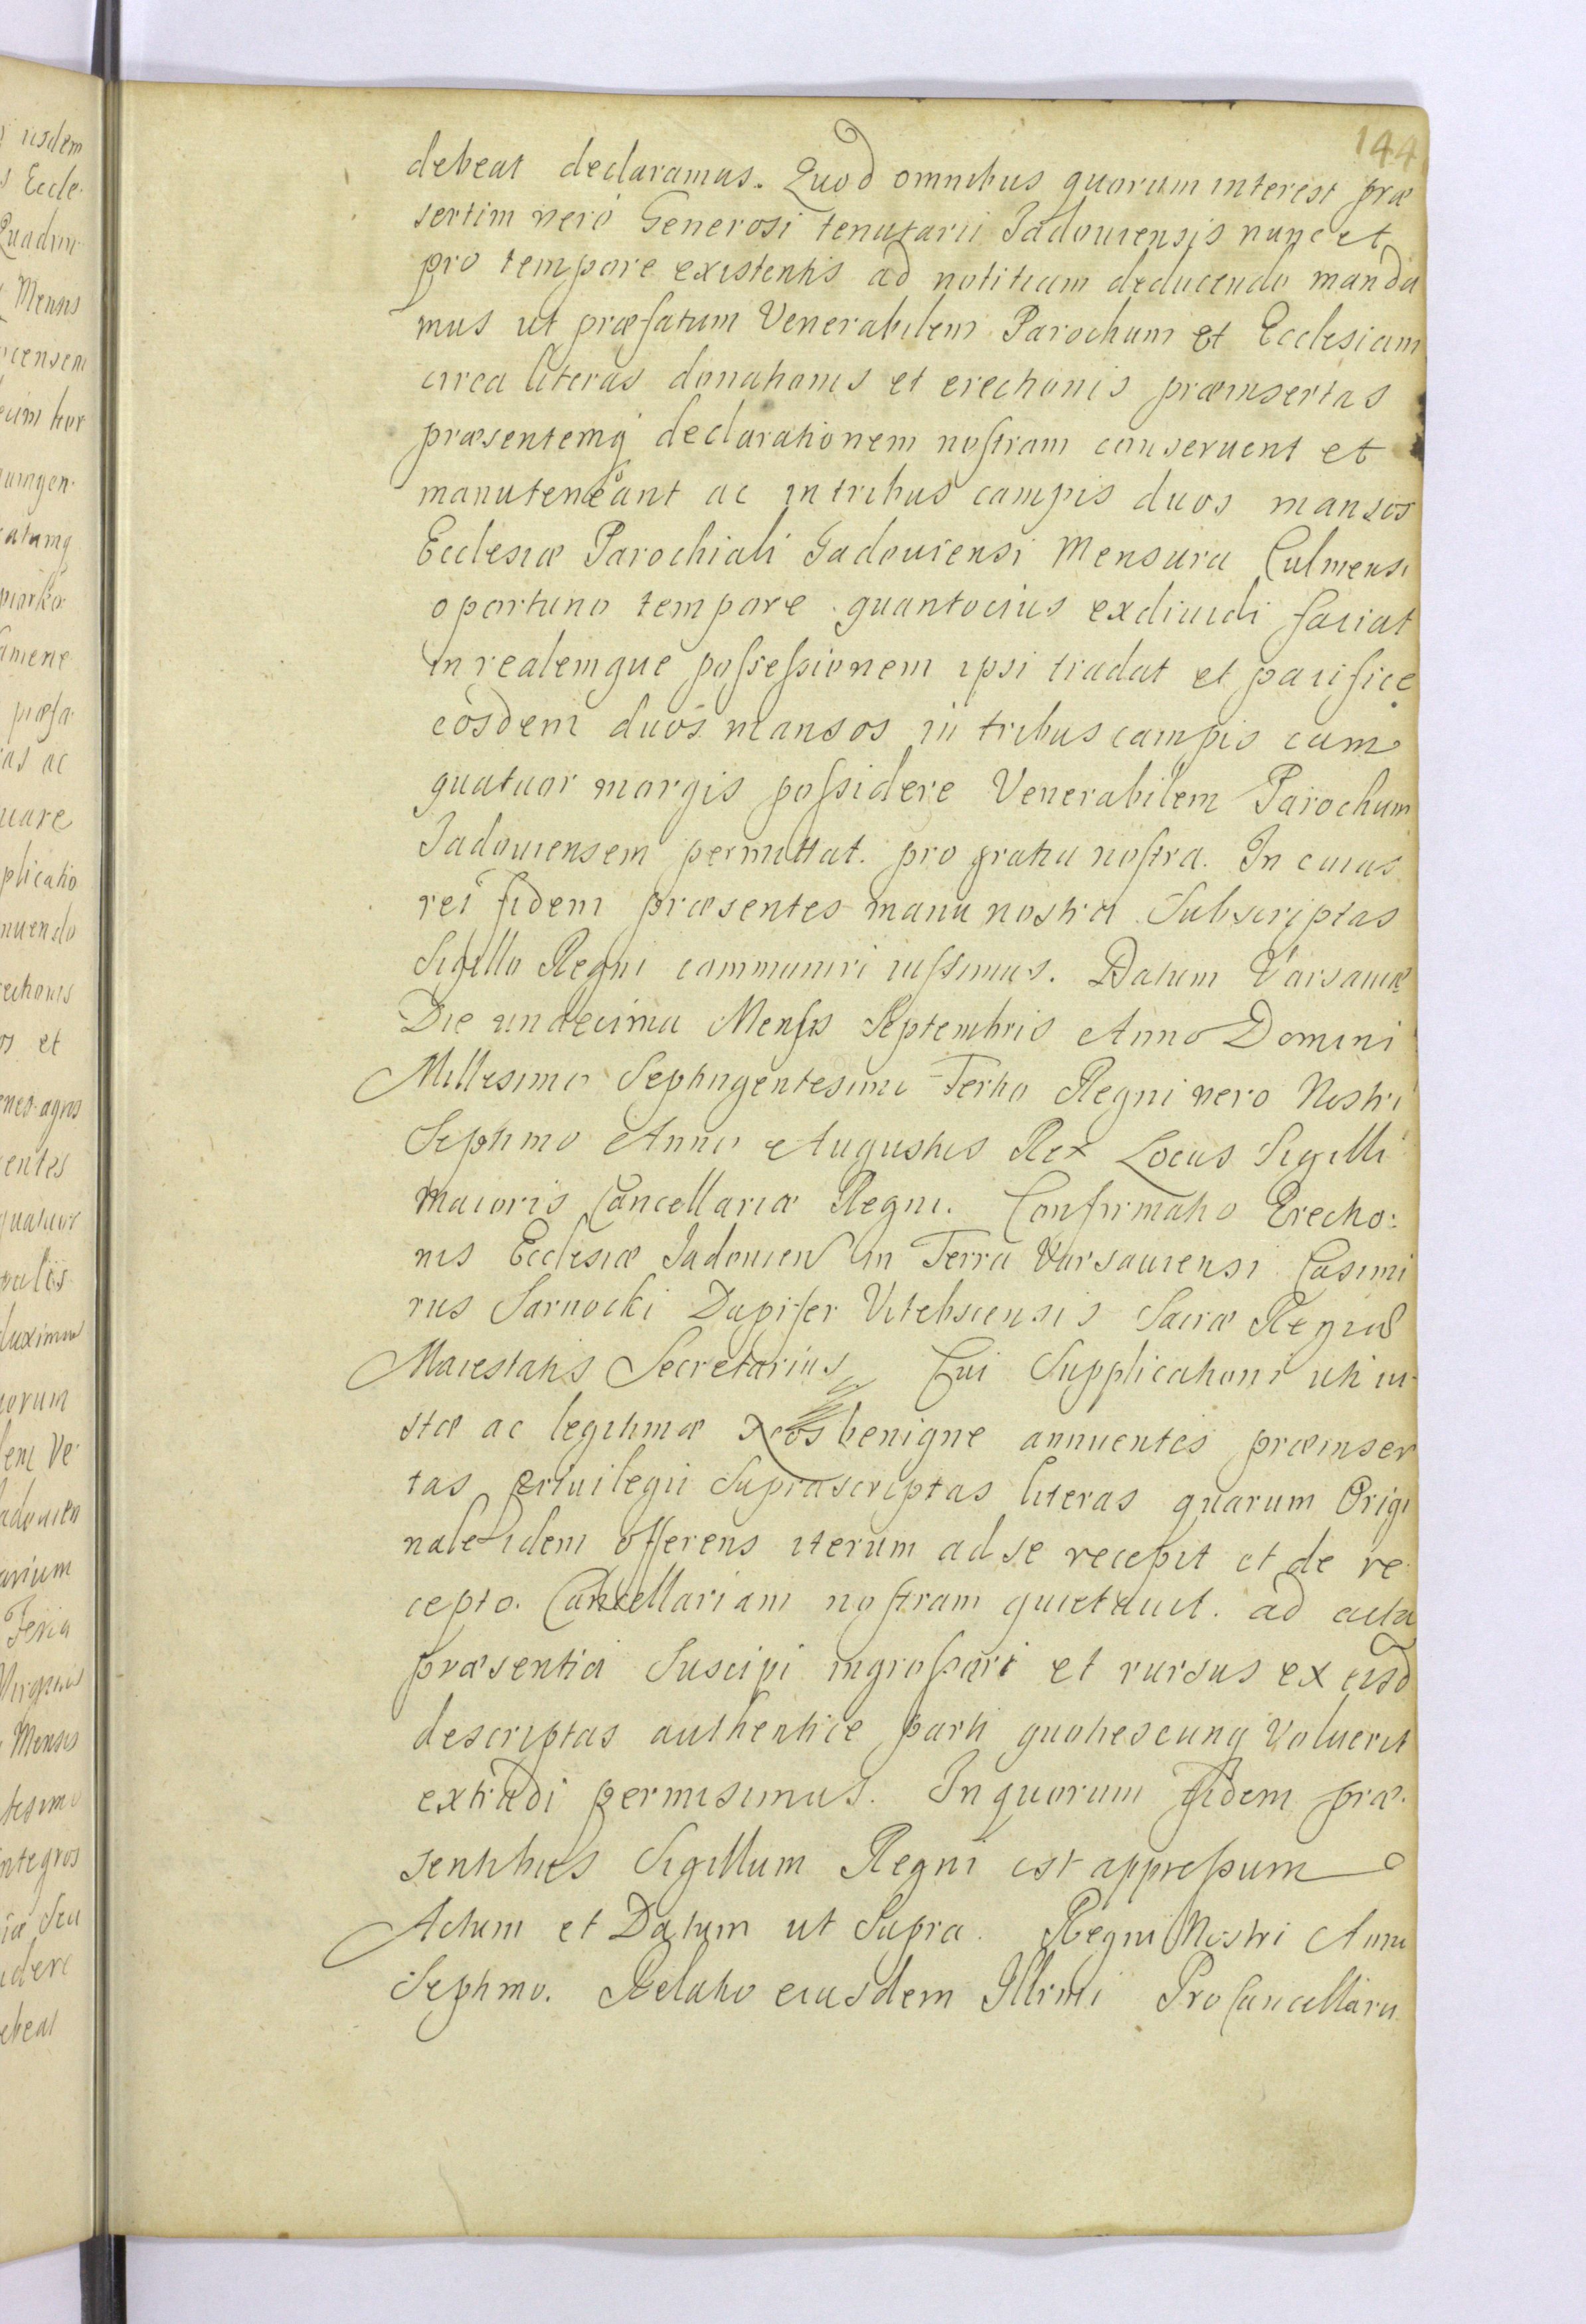 144
debeat declaramus. Quod omnibus quorum interest præ
sertim verò Generosi tenutarii Jadouiensis nunc et
pro tempore existentis ad notitiam deducendo manda
mus ut præfatum Venerabilem Parochum et Ecclesiam
circa literas donationis et erectionis præinsertas
præsentemq declarationem nostram conseruent et
manuteneant ac in tribus campis duos mansos
Ecclesiæ Parochiali Jadouiensi Mensura Culmensi
oportuno tempore quantocius exdiuidi faciat
in realemque possessionem ipsi tradat et pacifice
eosdem duos mansos in tribus campis cum
quatuor morgis possidere Venerabilem Parochum
Jadouiensem permittat. pro gratia nostra. In cuius
rei fidem præsentes manu nostra Subscriptas
Sigillo Regni communiri iussimus. Datum Varsauiæ
Die undecima Mensis Septembris Anno Domini
Millesimo Septingentesimo Tertio Regni vero Nostri
Septimo Anno Augustus Rex Locus Sigilli
maioris Cancellariæ Regni. Confirmatio Erectio:
nis Ecclesiæ Jadouien in Terra Varsauiensi Casimi
rus Sarnocki Dapifer Vitebscensis Sacræ Regiæ
Maiestatis Secretarius Cui Supplicationi uti iu-
stæ ac legitimæ Nos benigne annuentes præinser
tas priuilegii Suprascriptas literas quarum Origi
nale idem offerens iterum ad se recepit et de re
cepto. Cancellariam nostram quietauit. ad acta
præsentia Suscipi ingrossari et rursus ex eisd
descriptas authentice parti quotiescunq Voluerit
extradi permisimus. In quorum fidem præ.
sentibus Sigillum Regni est appressum
Actum et Datum ut Supra. Regni Nostri Anno
Septimo. Relatio eiusdem Illrmi Pro Cancellarii